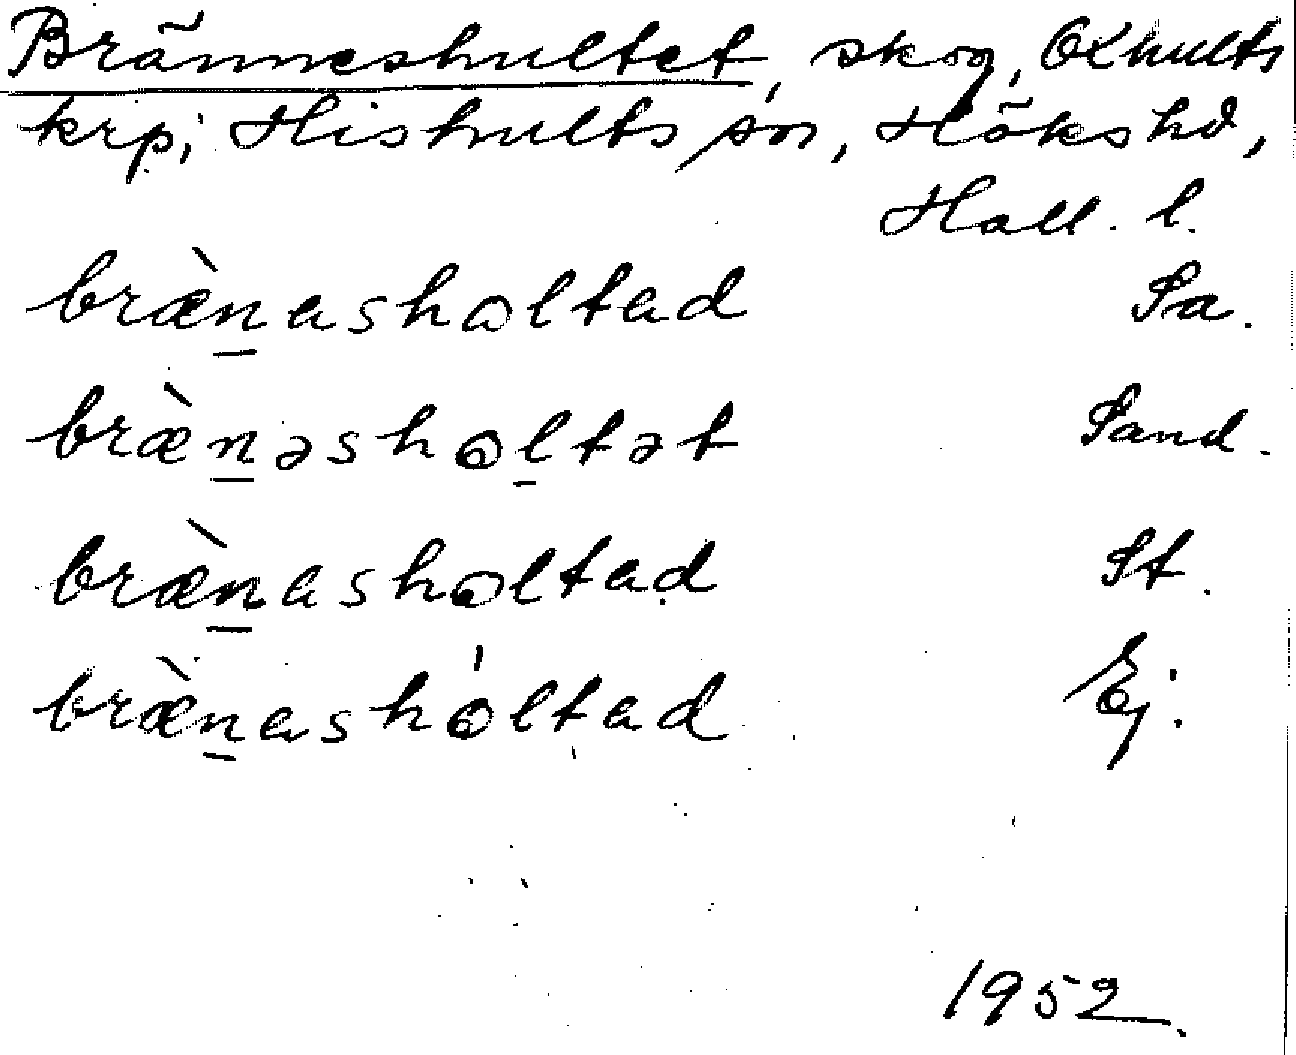 Bränneshultet, skog, Oxhults
krp; Hishults sn, Höks hd,
Hall. l.
bræ̀n̲asholtad Sa.
bræ̀n̲əshol̲tət Sand.
bræ̀n̲asholtad St.
bræ̀n̲ashóltad Ej.
1952.